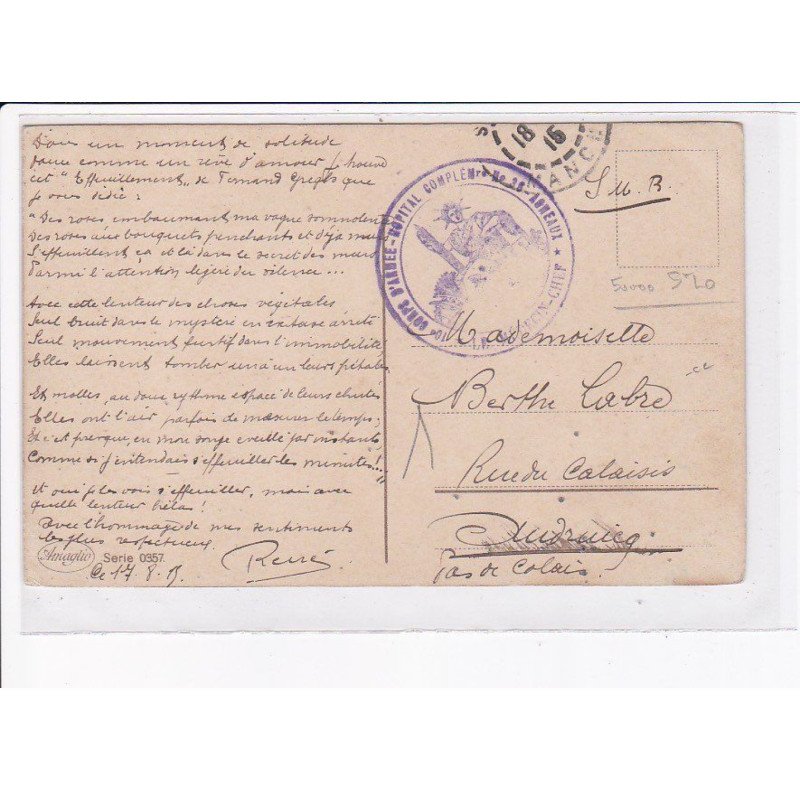 Dans un moment de solitude
douce comme un rêve d'amour je trouve
cet "Effeuillement" de Fernand Gregh que
je vous dédie :
"Des roses embaumant ma vague somnolence
Des roses aux bouquets penchants et déjà mûrs
S'effeuillent çà et là dans le secret des murs
Parmi l'attention légère du silence ...
Avec cette lenteur des choses végétales
Seul bruit dans le mystère en extase arrêté
Seul mouvement furtif dans l'immobilité
Elles laissent tomber un à un leurs pétales
Et molles, au doux rythme espacé de leurs chutes
Elles ont l'air parfois de mesurer le temps,
Et c'est presque, en mon songe éveillé par instants
Comme si j'entendais s'effeuiller les minutes !..."
Et oui je les vois s'effeuiller, mais avec
quelle lenteur hélas !
Avec l'hommage de mes sentiments
les plus respectueux
René
Amaglio Serie 0357.
Ce 17. 8. 15
10e CORPS D'ARMEE - HOPITAL COMPLEMre No 36 - AGNEAUX ★
CHEF ★
18 15
MANCHE
S. M. B.
50000 520
Mademoiselle
Berthe Labre
Rue du Calaisis
Audruicq
Pas de Calais